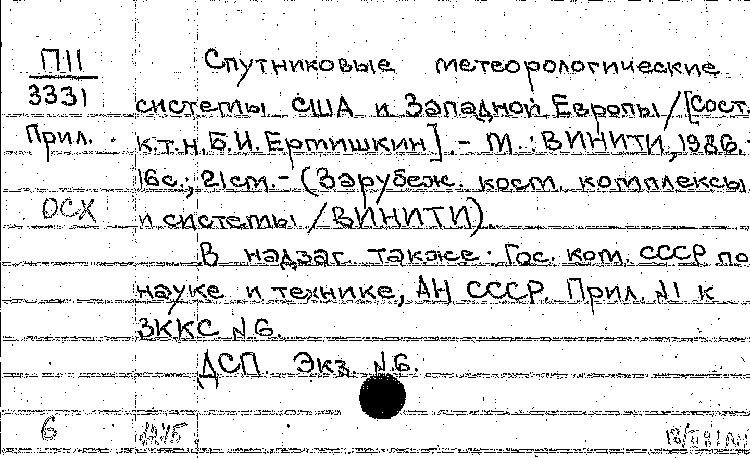 П11
3331
Прил.
ОСХ
Спутниковые метеорологические
системы США и Западной Европы / [Сост.
к.т.н. Б.И. Ертишкин]. - М.: ВИНИТИ, 1986. -
16с.; 21см. - (Зарубеж. косм. комплексы
и системы / ВИНИТИ).
В надзаг. также: Гос. ком. СССР по
науке и технике, АН СССР. Прил. N1 к
ЗККС N6.
ДСП. Экз. N6.
6